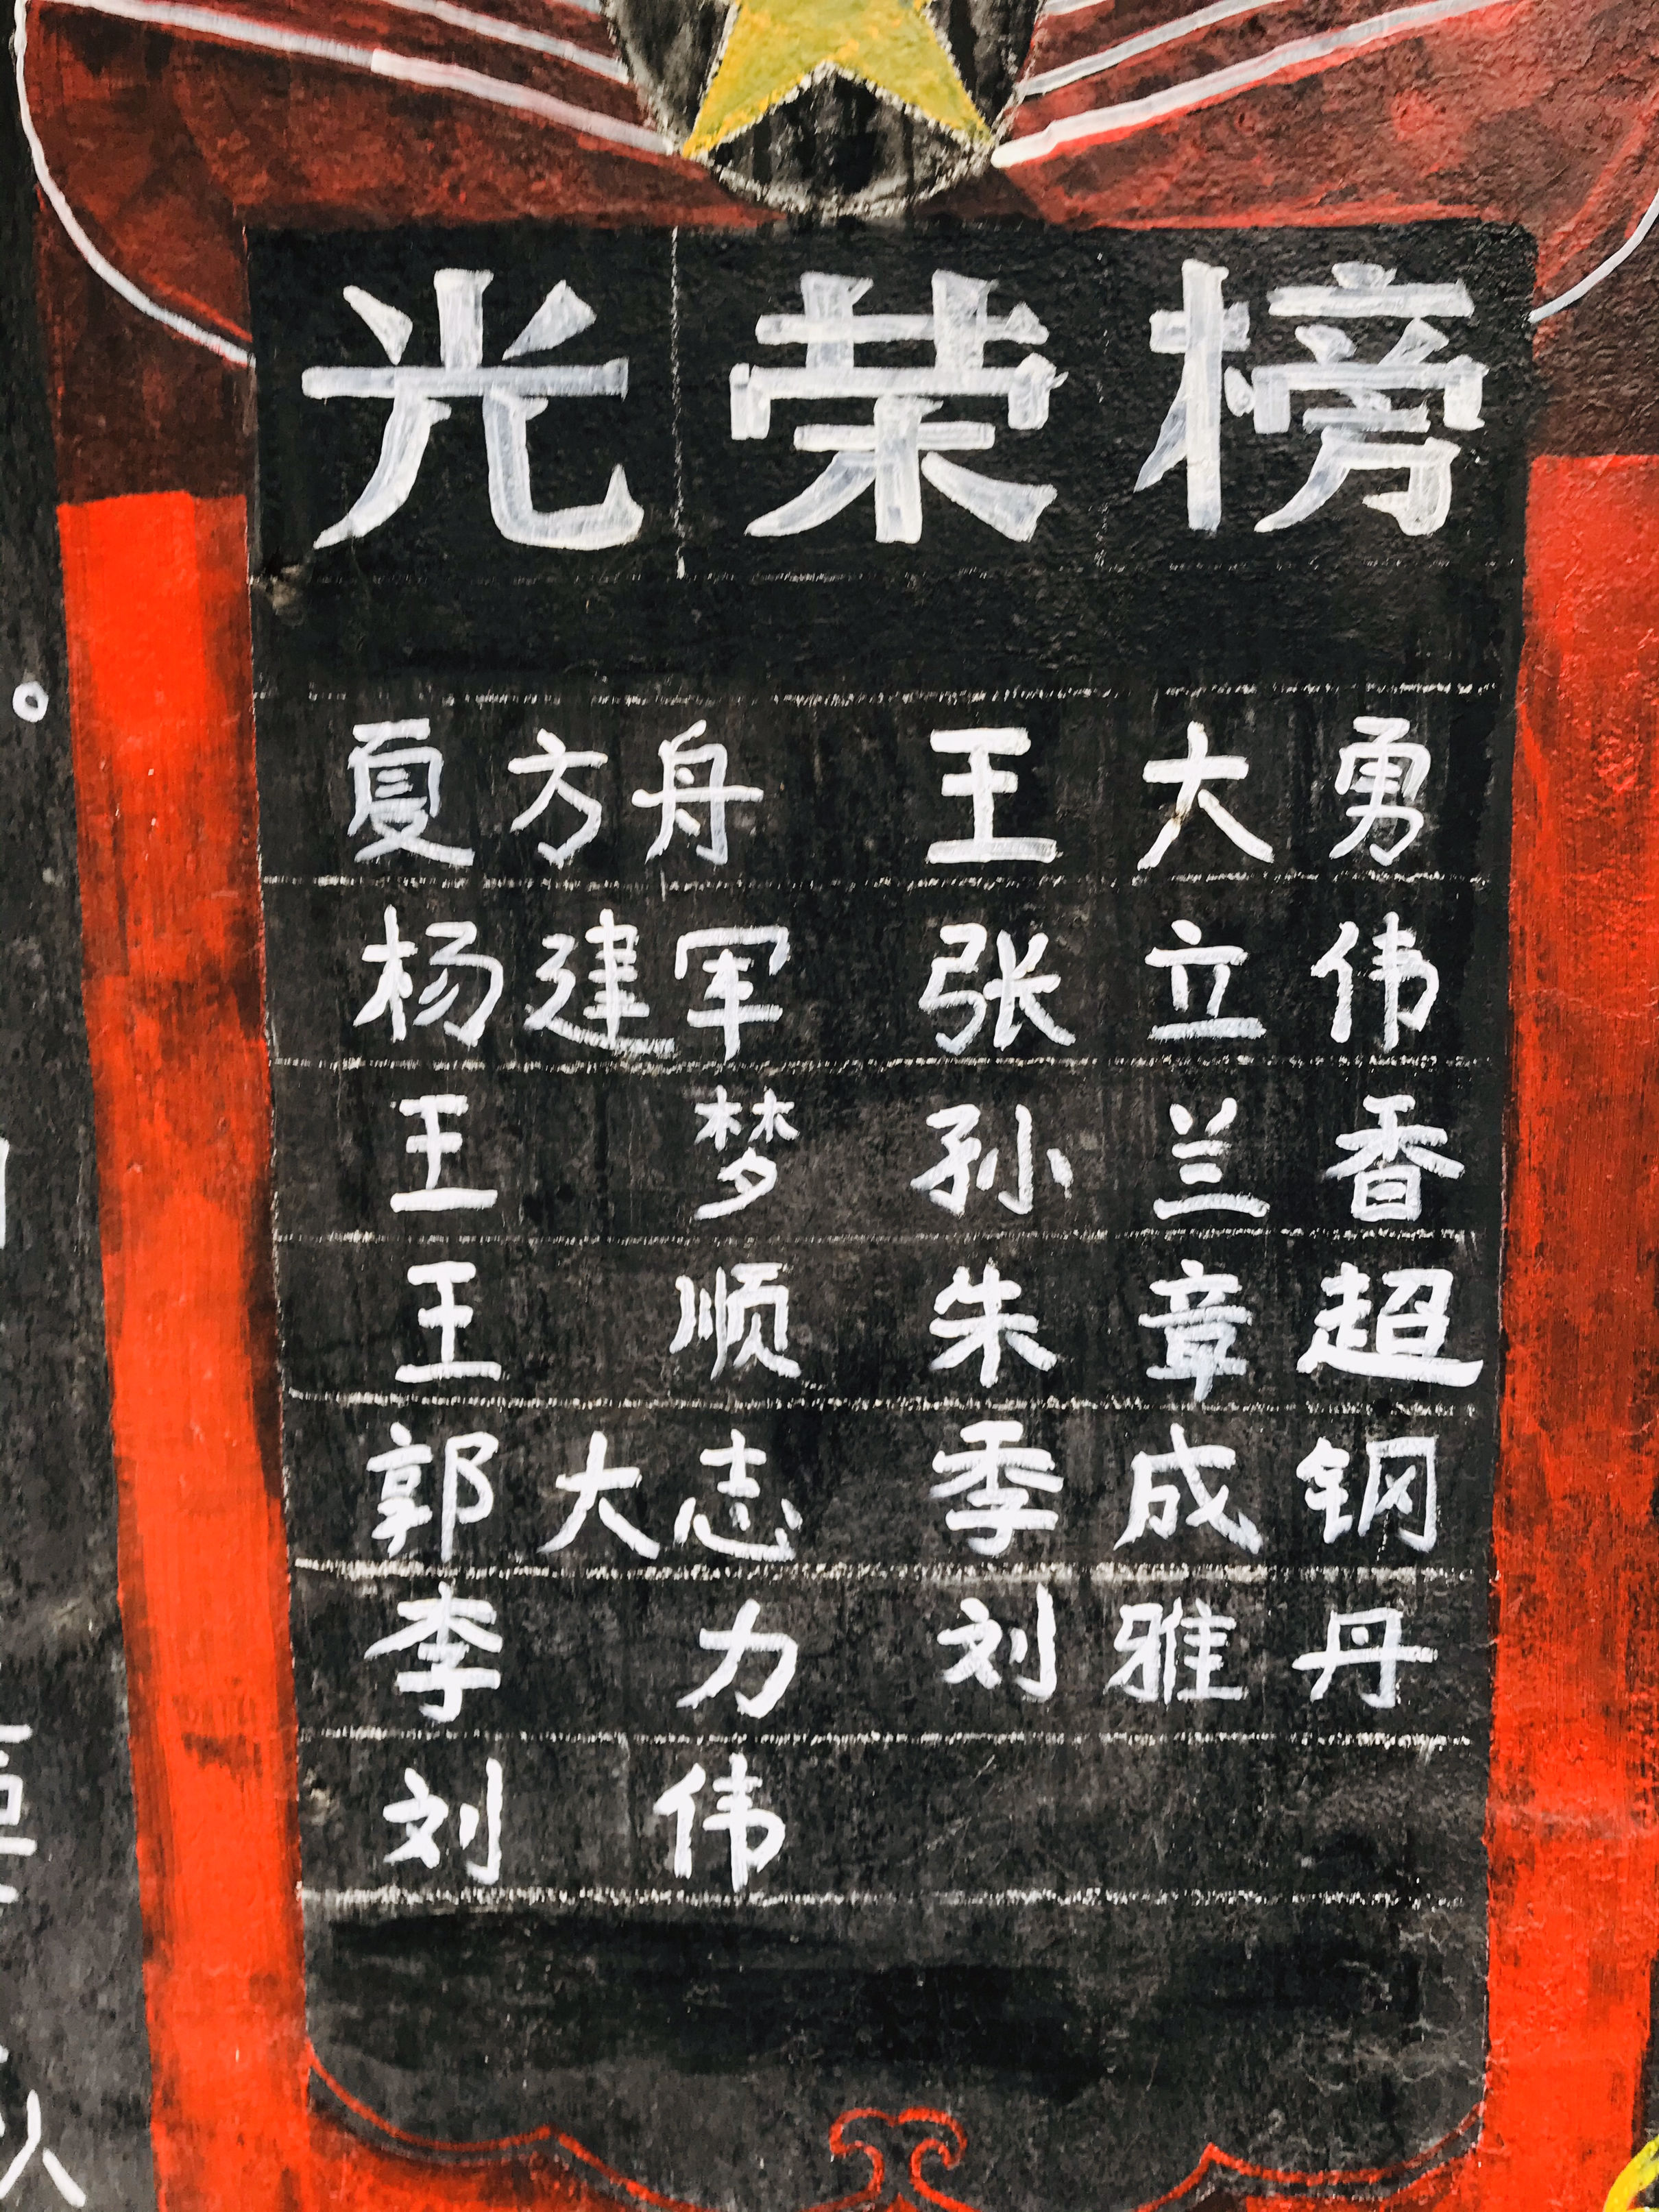 光荣榜
夏方舟 王大勇
杨建军 张立伟
王梦 孙兰香
王顺 朱章超
郭大志 季成钢
李力 刘雅丹
刘伟
。
人